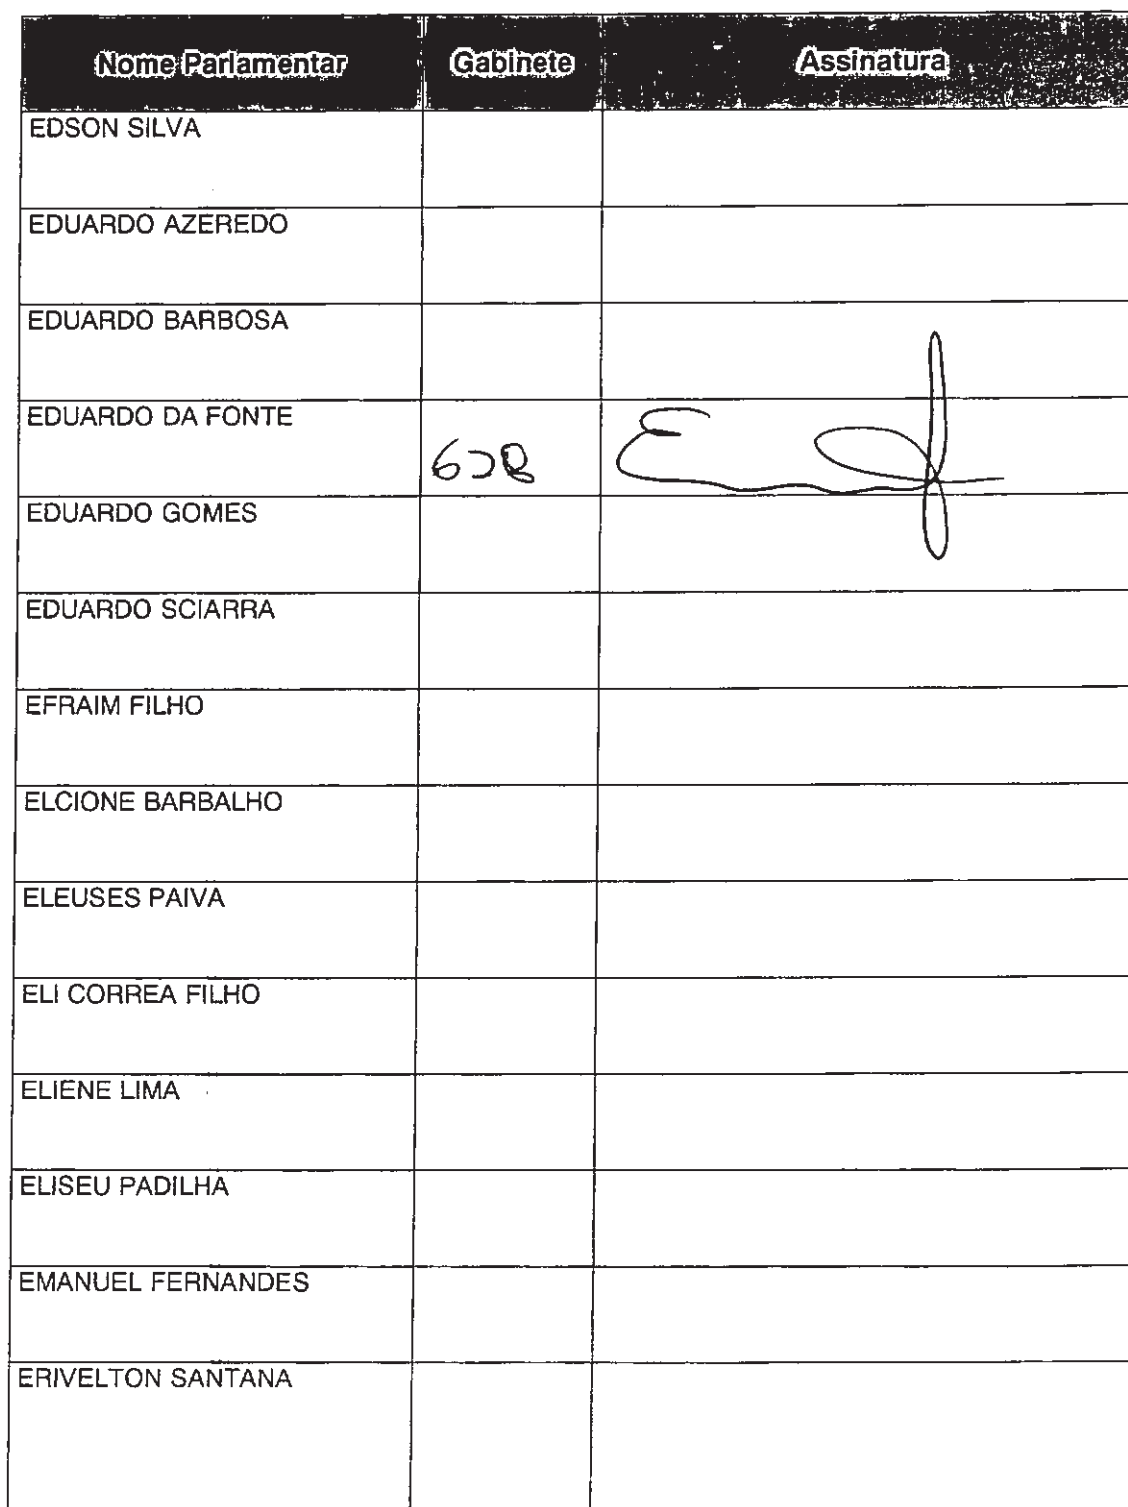 Nome Parlamentar Gabinete Assinatura
EDSON SILVA
EDUARDO AZEREDO
EDUARDO BARBOSA
EDUARDO DA FONTE
EDUARDO GOMES
EDUARDO SCIARRA
EFRAIM FILHO
ELCIONE BARBALHO
ELEUSES PAIVA
ELI CORREA FILHO
ELIENE LIMA
ELISEU PADILHA
EMANUEL FERNANDES
ERIVELTON SANTANA